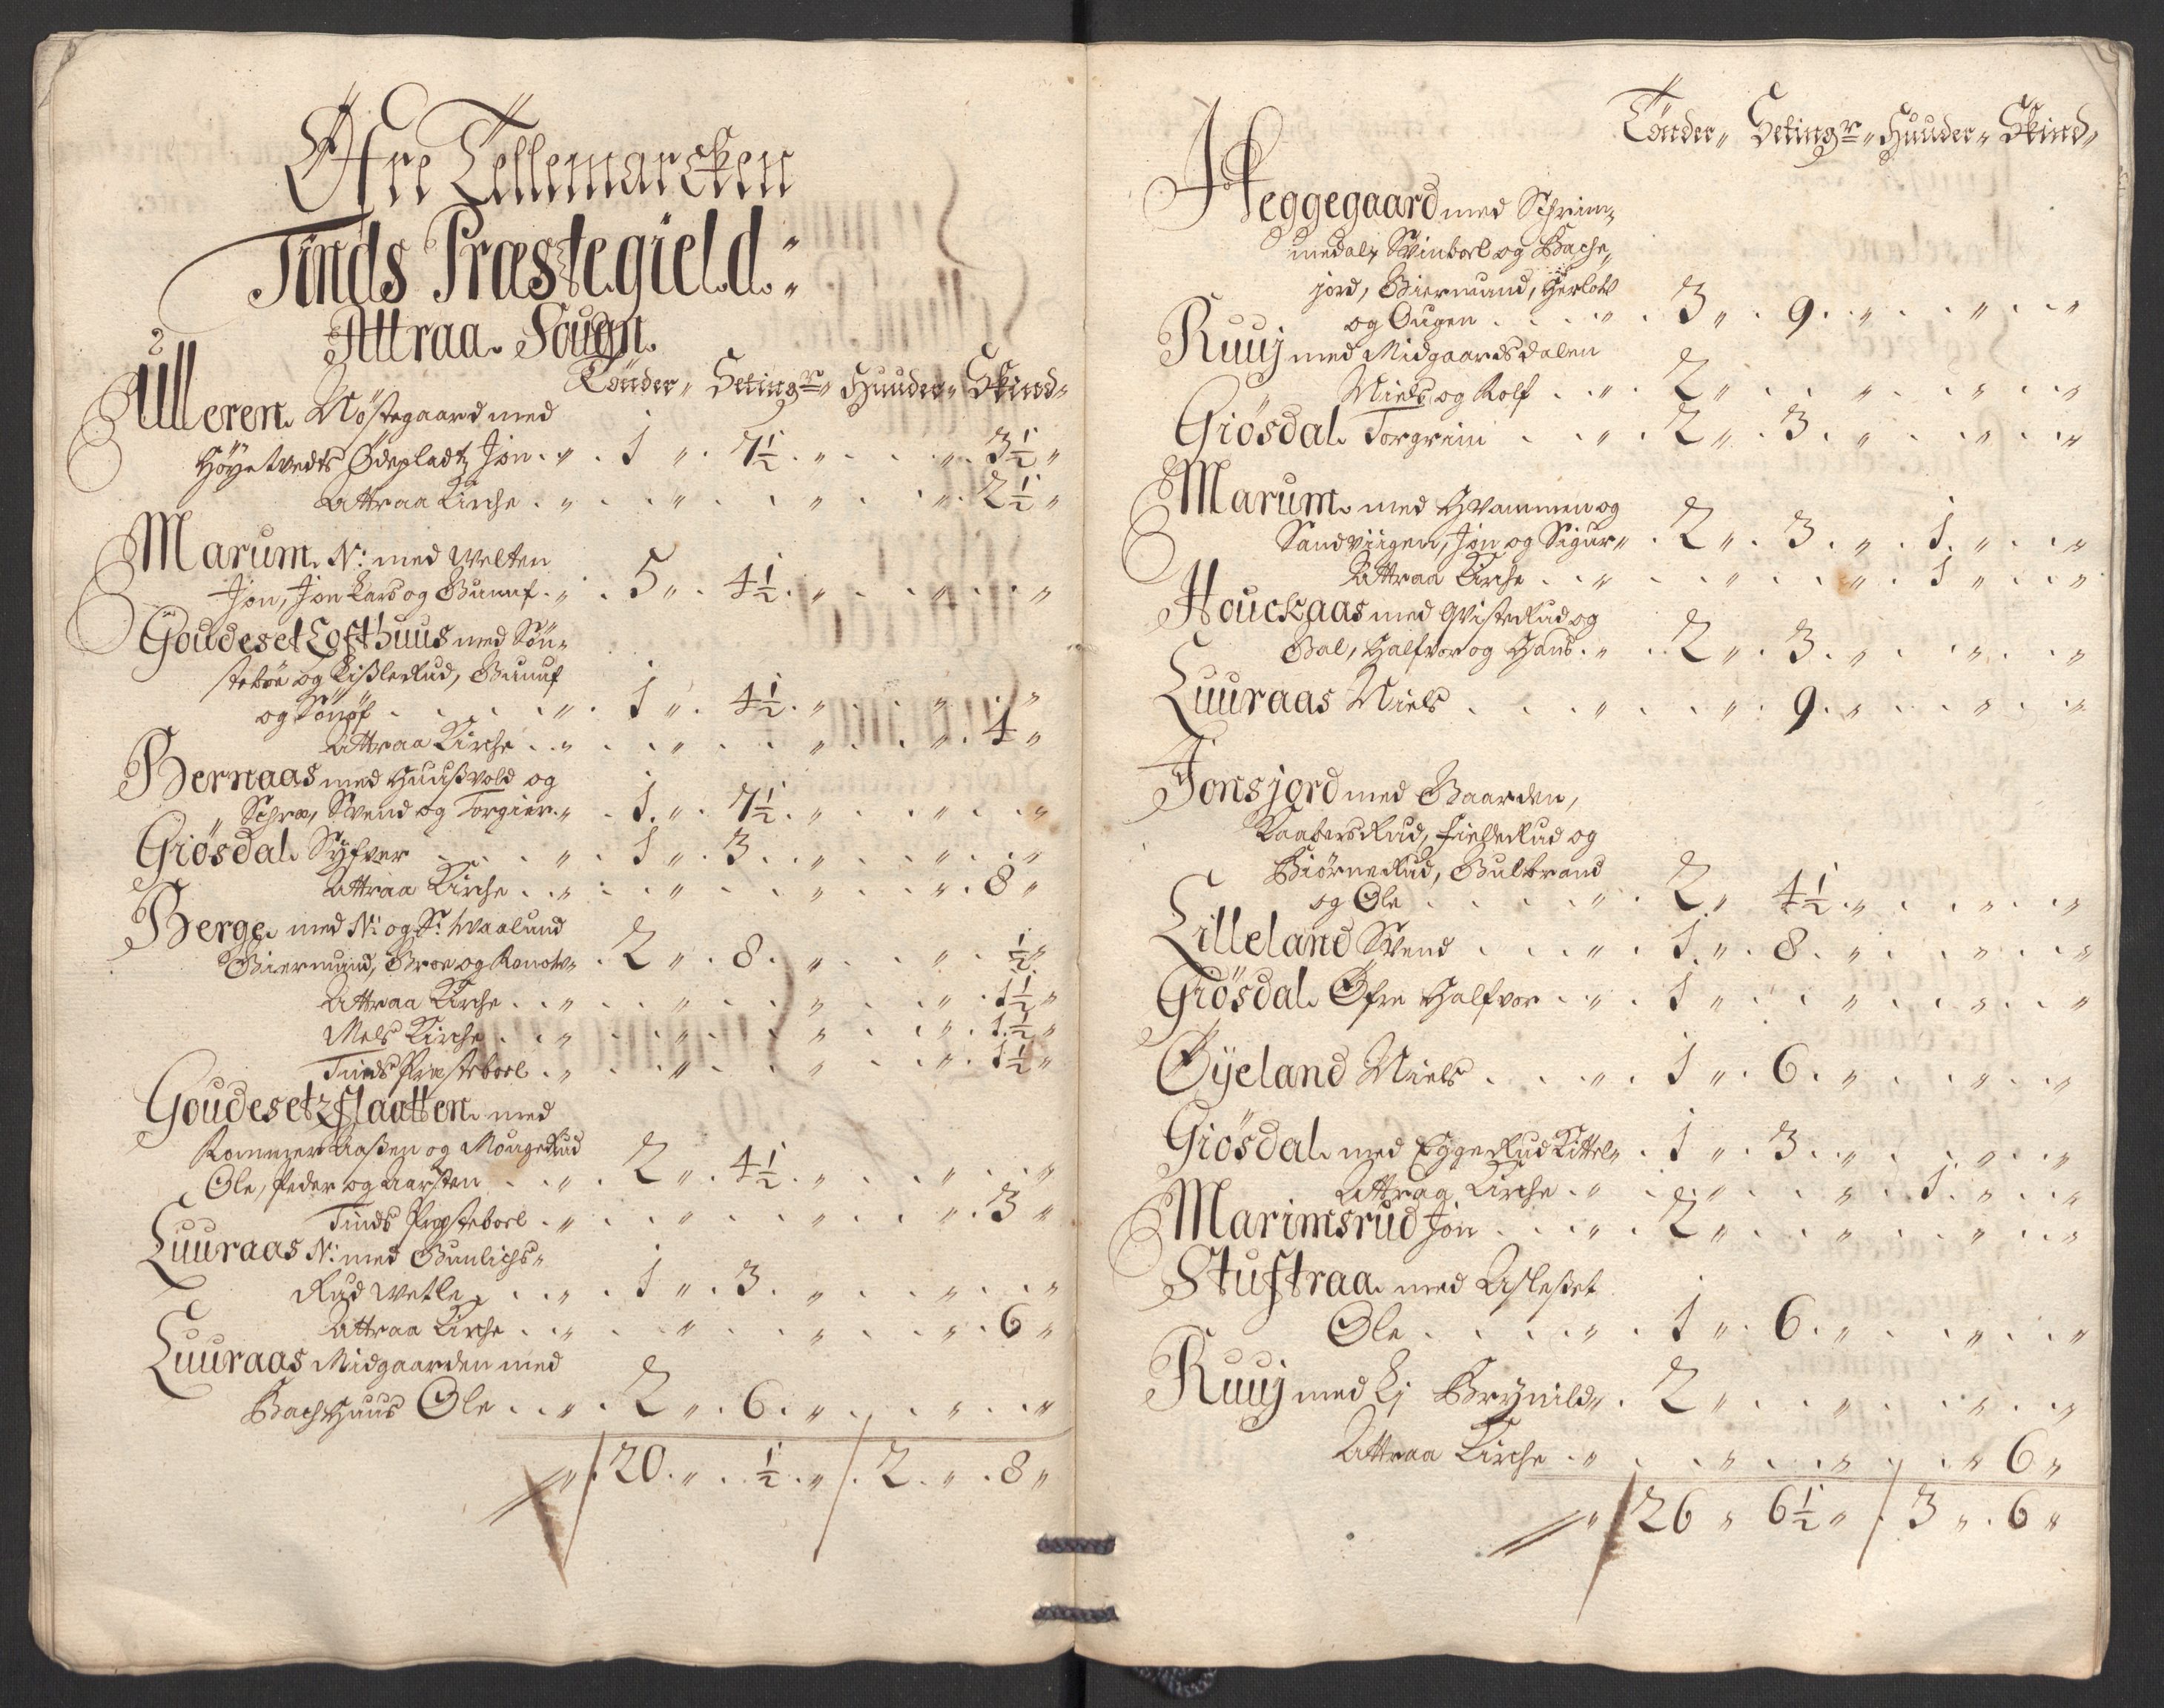 Øfre Tellemarcken
Tinds Præstegield.
Attraa Sougn.
Tönder Setingr Huuder Skind
Ulleren Nöstegaard med
Höyetvedts Ødepladtz Jon 1 7½ 3½
Attraa Kirche 2½
Marum N: med Welten
Jon, Jon Lars og Gunuf 5 4½
Goudeset Lofthuus med Sön-
steböe og Kißlerud, Gunuf
og Sönof 1 4½
Attraa Kirche 4
Bernaas med Huußvold og
Schræ, Svend og Torgier 1 7½
Giösdal Syfver 1 3
Attraa Kirche 8
Berge med N: og S: Waalund
Giermund, Groe og Ronow 2 8 ½
Attraa Kirche 1½
Mels Kirche 1½
Tinds Præsteboel 1½
Goudesetz flaatten med
Rommeraaßen og Mougerud
Ole, Peder og Aarsten 2 4½
Tinds Præsteboel 3
Luuraas N: med Gunlichs-
Rud Wetle 1 3
Attraa Kirche 6
Luuraas Midgaarden med
Bachhuus Ole 2 6
20 ½ 2 8
Tönder Setingr Huuder Skind
Heggegaard med Schrim-
medal, Svinboel og Bache-
jord, Giermund, Herlow
og Ougen 3 9
Ruuj med Midgaardsdalen
Niels og Rolf 2
Giösdal Torgrim 2 3
Marum med Hvammen og
Sandviigen, Jon og Sigur 2 3 1
Attraa Kirche 1
Houckaas med Qvisterud og
Bal, Halfvor og Hans 2 3
Luuraas Niels 9
Jonsjord med Gaarden,
Kaabersrud, Fielderud og
Biörnerud, Gulbrand
og Ole 2 4½
Lilleland Svend 1 8
Giösdal Øfre Halfvor 1
Øyeland Niels 1 6
Giösdal med Eggerud Kittel 1 3
Attraa Kirche 1
Marimsrud Jon 2
Stuftraa med Asleset
Ole 1 6
Ruuj med Lj Brynild 2
Attraa Kirche 6
26 6½ 3 6